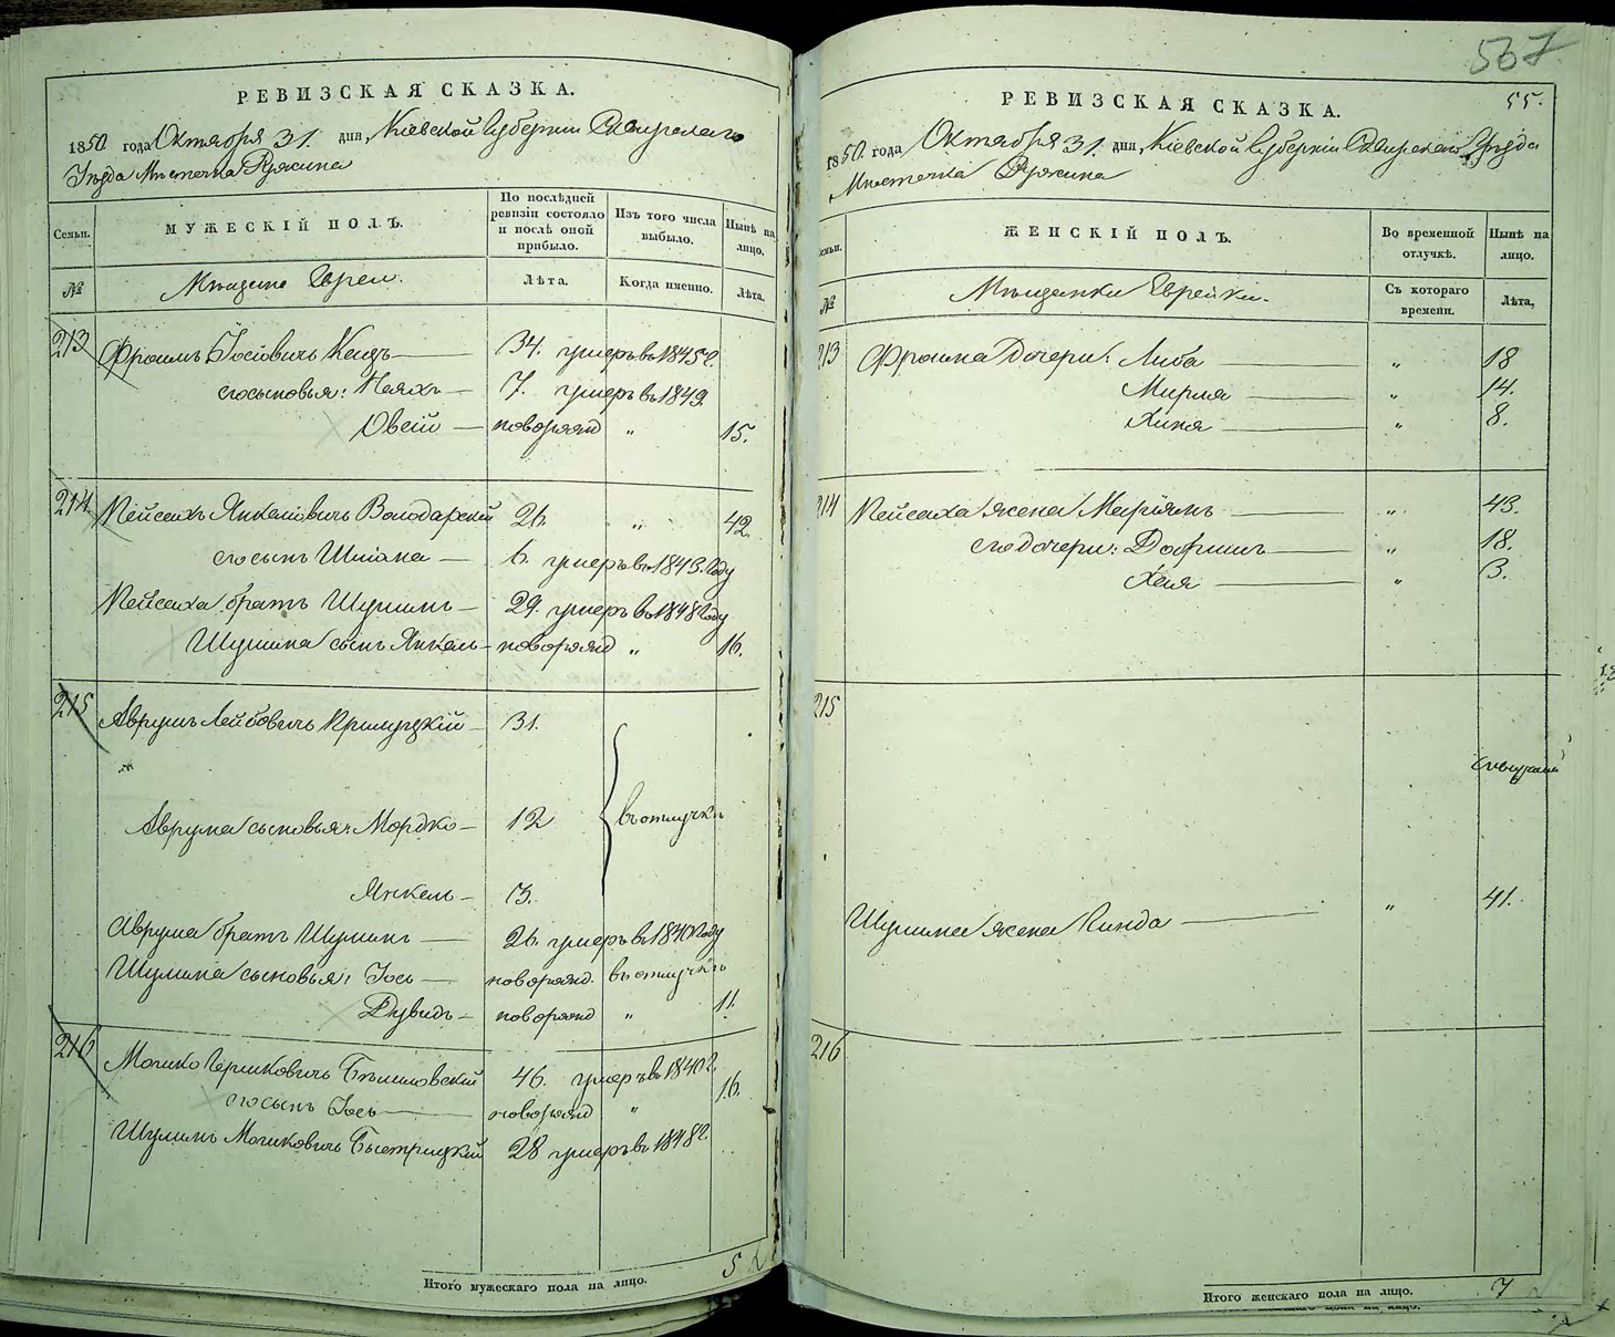 РЕВИЗСКАЯ СКАЗКА.
1850 года Октября 31. дня, Кіевской Губерніи Сквирскаго
Уѣзда Мѣстечка Ружина
Семьи.
МУЖЕСКІЙ ПОЛЪ.
По послѣдней ревизіи состояло и послѣ оной прибыло.
Изъ того числа выбыло.
Нынѣ на лицо.
№
Мѣщане Евреи.
Лѣта.
Когда именно.
Лѣта.
213 Фроимъ Іосіовичъ 34. умеръ въ 1845 г.
его сыновья: 7. умеръ въ 1849.
Овсій — новорожд „ 15.
214 Пейсахъ Янкеліовичъ Володарскій 26. „ 42.
его сынъ 6. умеръ въ 1843. Году
Пейсаха братъ Шулимъ — 29. умеръ въ 1848 Году
Шулима сынъ Янкель — новорожд „ 16.
215 Аврумъ Лейбовичъ — 31.
Аврума сыновья: Мордко — 12 въ отлучкѣ
Янкель — 3.
Аврума братъ Шулимъ — 26. умеръ въ 1840 Году
Шулима сыновья: Іось — новорожд. въ отлучкѣ
Дувидъ — новорожд „ 11.
216 Мошко Гершковичъ 46. умеръ въ 1840 г.
его сынъ Іось — новорожд „ 16.
Шулимъ Мошковичъ Быстрицкій 28 умеръ въ 1848 г.
Итого мужескаго пола на лицо. 5
567
55.
РЕВИЗСКАЯ СКАЗКА.
1850. года Октября 31. дня, Кіевской Губерніи Сквирскаго Уѣзда
Мѣстечка Ружина
Семьи.
ЖЕНСКІЙ ПОЛЪ.
Во временной отлучкѣ.
Нынѣ на лицо.
№
Мѣщанки Еврейки.
Съ котораго времени.
Лѣта,
213 Фроима Дочери: Либа — „ 18
Мирля — „ 14.
Хиня — „ 8.
214 Пейсаха жена Маріямъ — „ 43.
его дочери: „ 18.
Хая — „ 3.
215
Шулима жена Кинда — „ 41.
216
Итого женскаго пола на лицо. 7